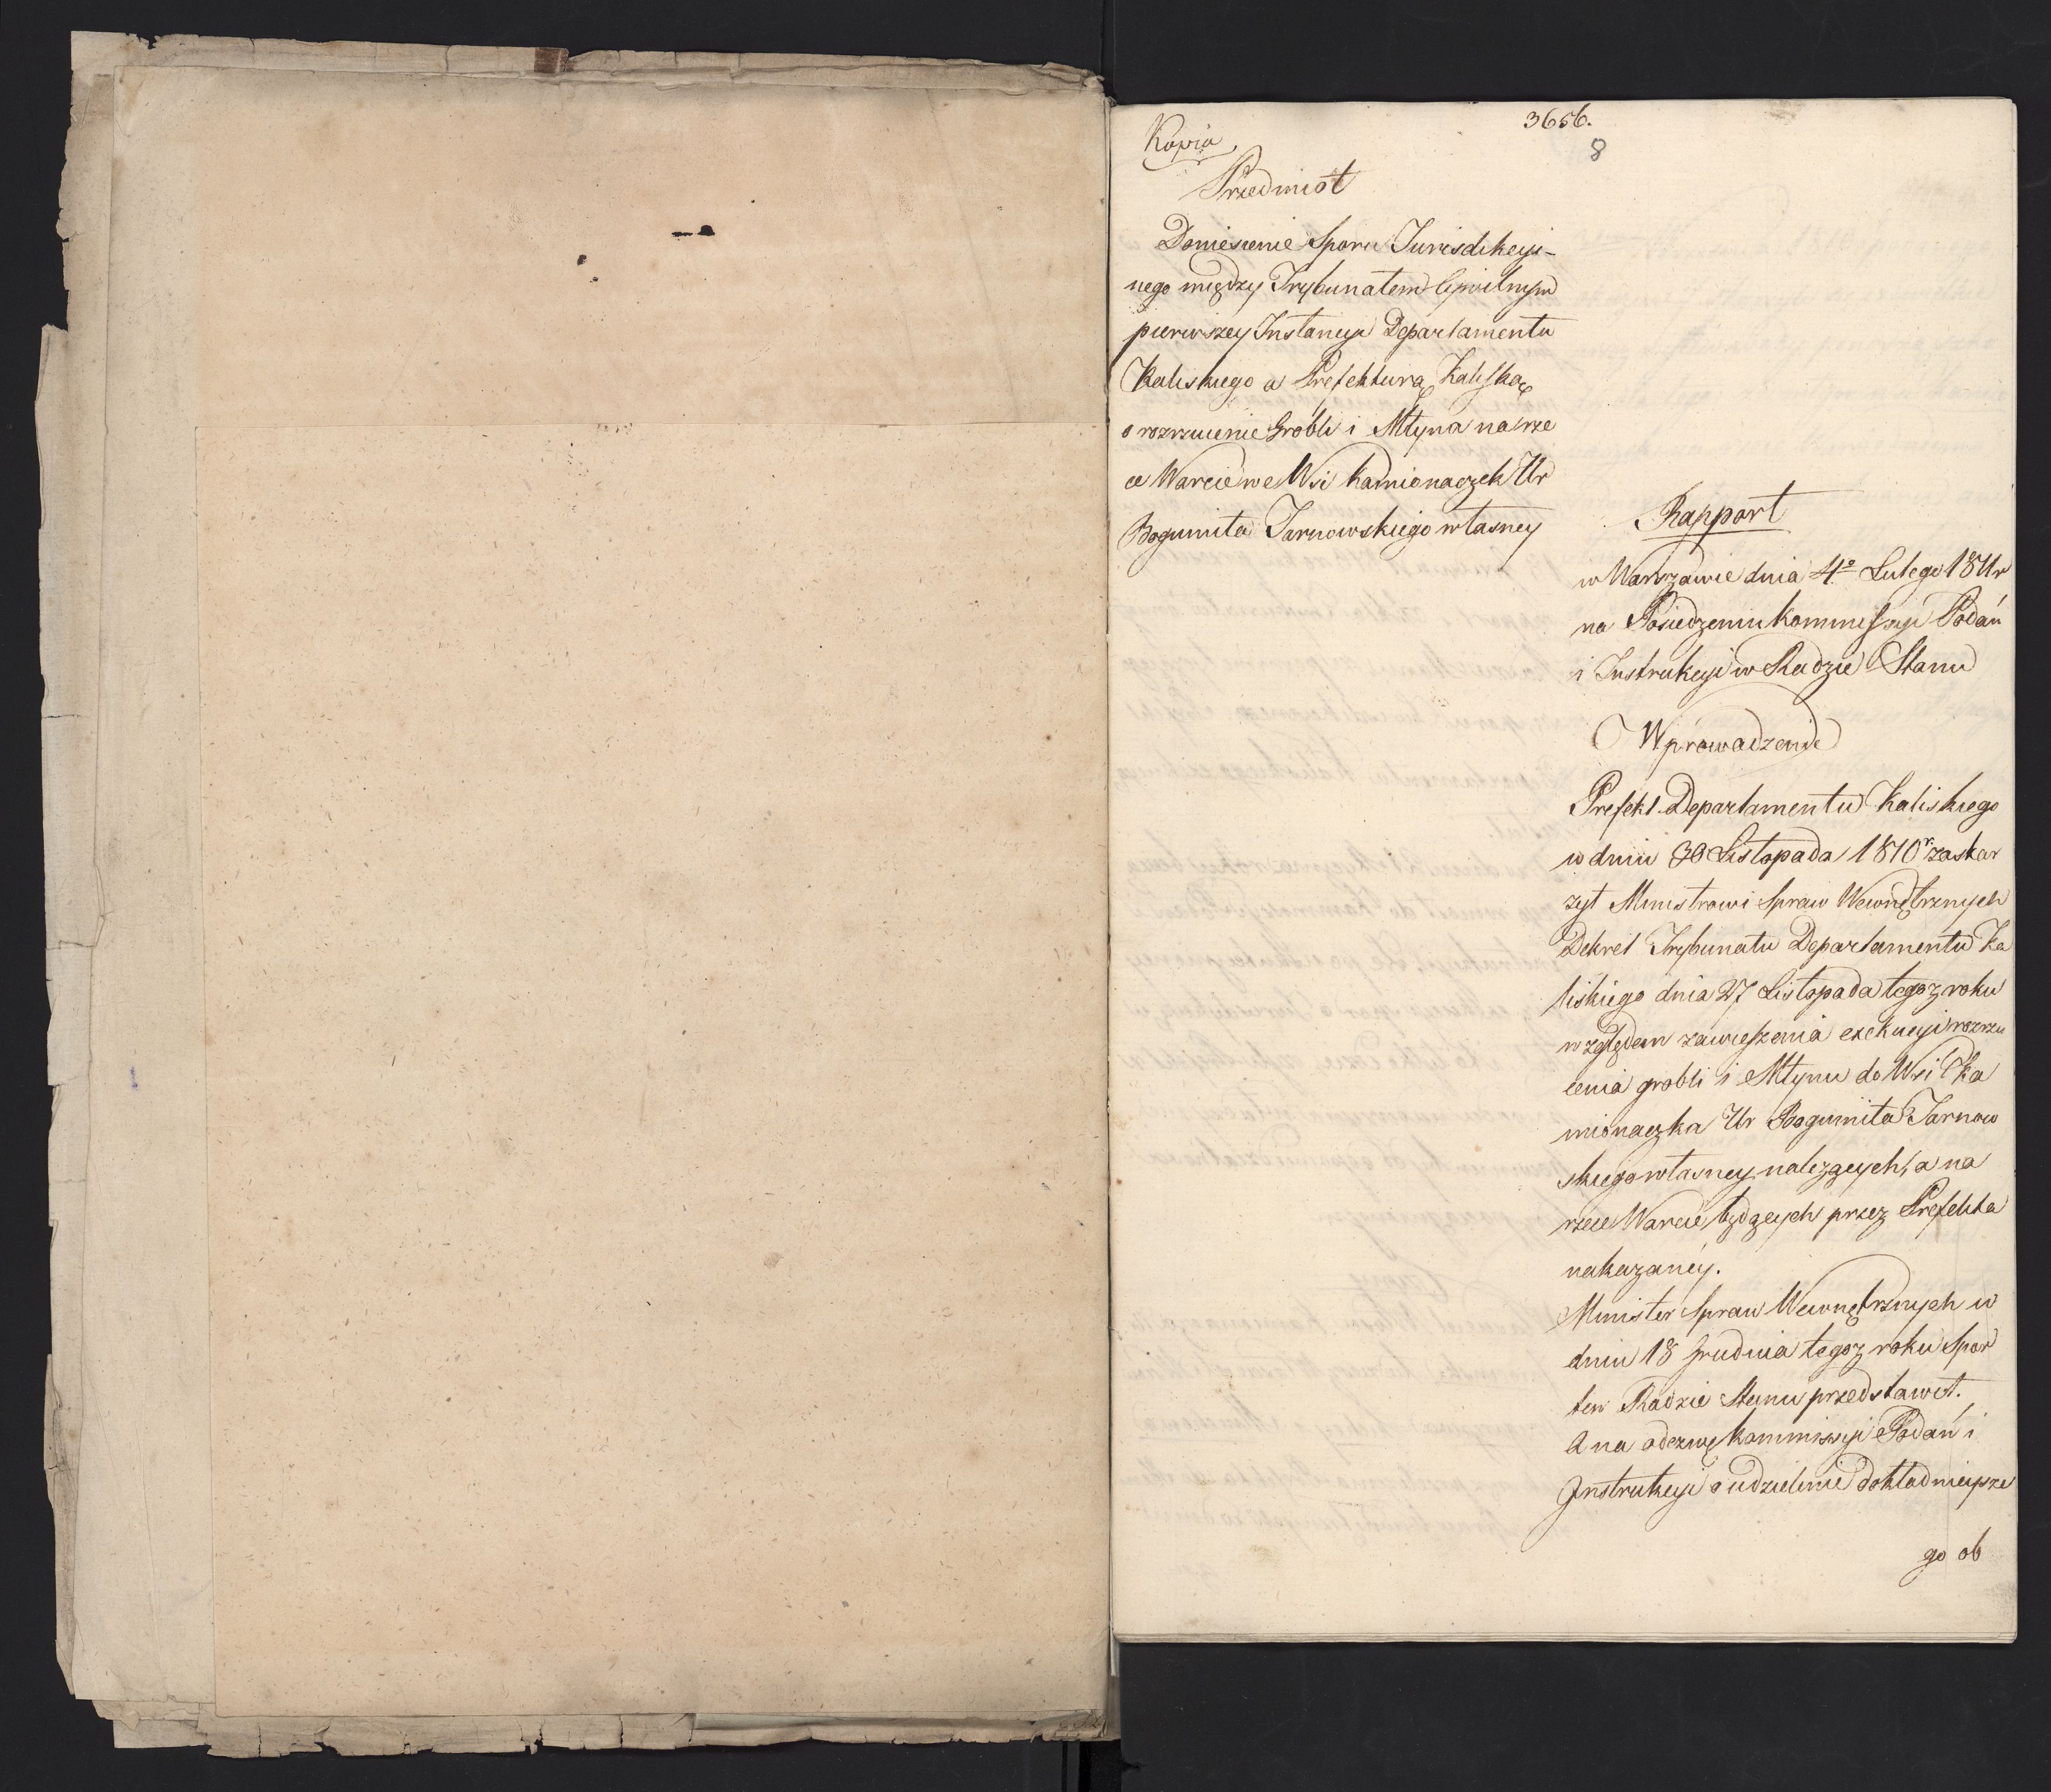 3656.
8
Kopia
Przedmiot
Doniesienie Sporu Jurisdikcyi-
nego między Trybunałem Cywilnym
pierwszey Instancyi Departamentu
Kaliskiego a Prefekturą Kaliską
o rozrzucenie Grobli i Młyna na rze
ce Warcie we Wsi Kamionaczek Ur
Bogumiła Tarnowskiego własney
Rapport
w Warszawie dnia 4º Lutego 1811r
na Posiedzeniu Kommissyi Podań
i Instrukcyi w Radzie Stanu
Wprowadzenie
Prefekt Departamentu Kaliskiego
w dniu 30 Listopada 1810r zaskar
żył Ministrowi Spraw Wewnętrznych
Dekret Trybunału Departamentu Ka
liskiego dnia 27 Listopada tegoz roku
względem zawieszenia exekucyi rozrzu
cenia grobli i Młynu do Wsi Ka
mionaczka Ur Bogumiła Tarnow
skiego własney należących, a na
rzece Warcie będących przez Prefekta
nakazaney.
Minister Spraw Wewnętrznych w
dniu 18 Grudnia tegoz roku Spor
ten Radzie Stanu przedstawił.
A na odezwę Kommissyi Podań i
Instrukcyi o udzielenie dokładnieysze
go ob